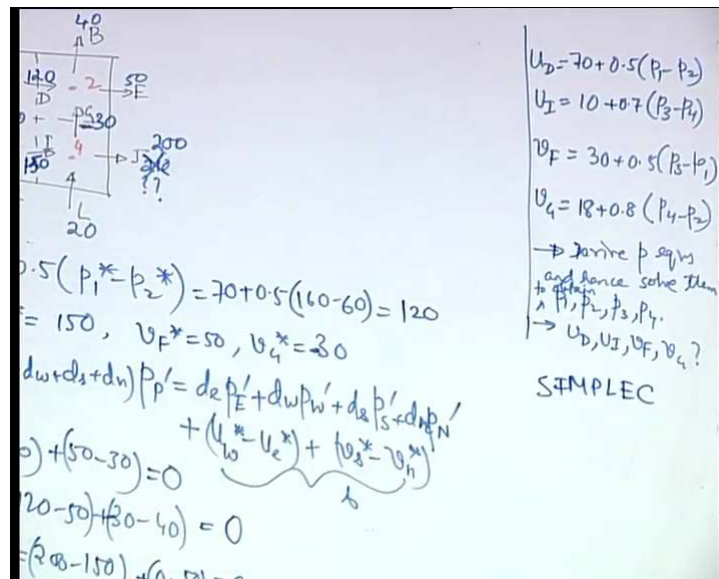 40
B
120
D
2
50
E
PG
30
I
150
4
J
200
??
L
20
0.5(p₁*-p₂*)=70+0.5(160-60)=120
= 150, v_F*=50, v_G*=30
dw+ds+dn)P_P'=d_e p_E'+dw p_W'+d_s p_S'+d_n p_N'
+(u_w*-u_e*)+(v_s*-v_n*)
b
)+(50-30)=0
20-50)+(30-40)=0
=(200-150)
U_D=70+0.5(P₁-P₂)
U_I=10+0.7(P₃-P₄)
v_F=30+0.5(P₃-P₁)
v_G=18+0.8(P₄-P₂)
→ Derive p eqns
and hence solve them
to obtain
P₁,P₂,P₃,P₄.
→ U_D,U_I,v_F,v_G?
SIMPLEC